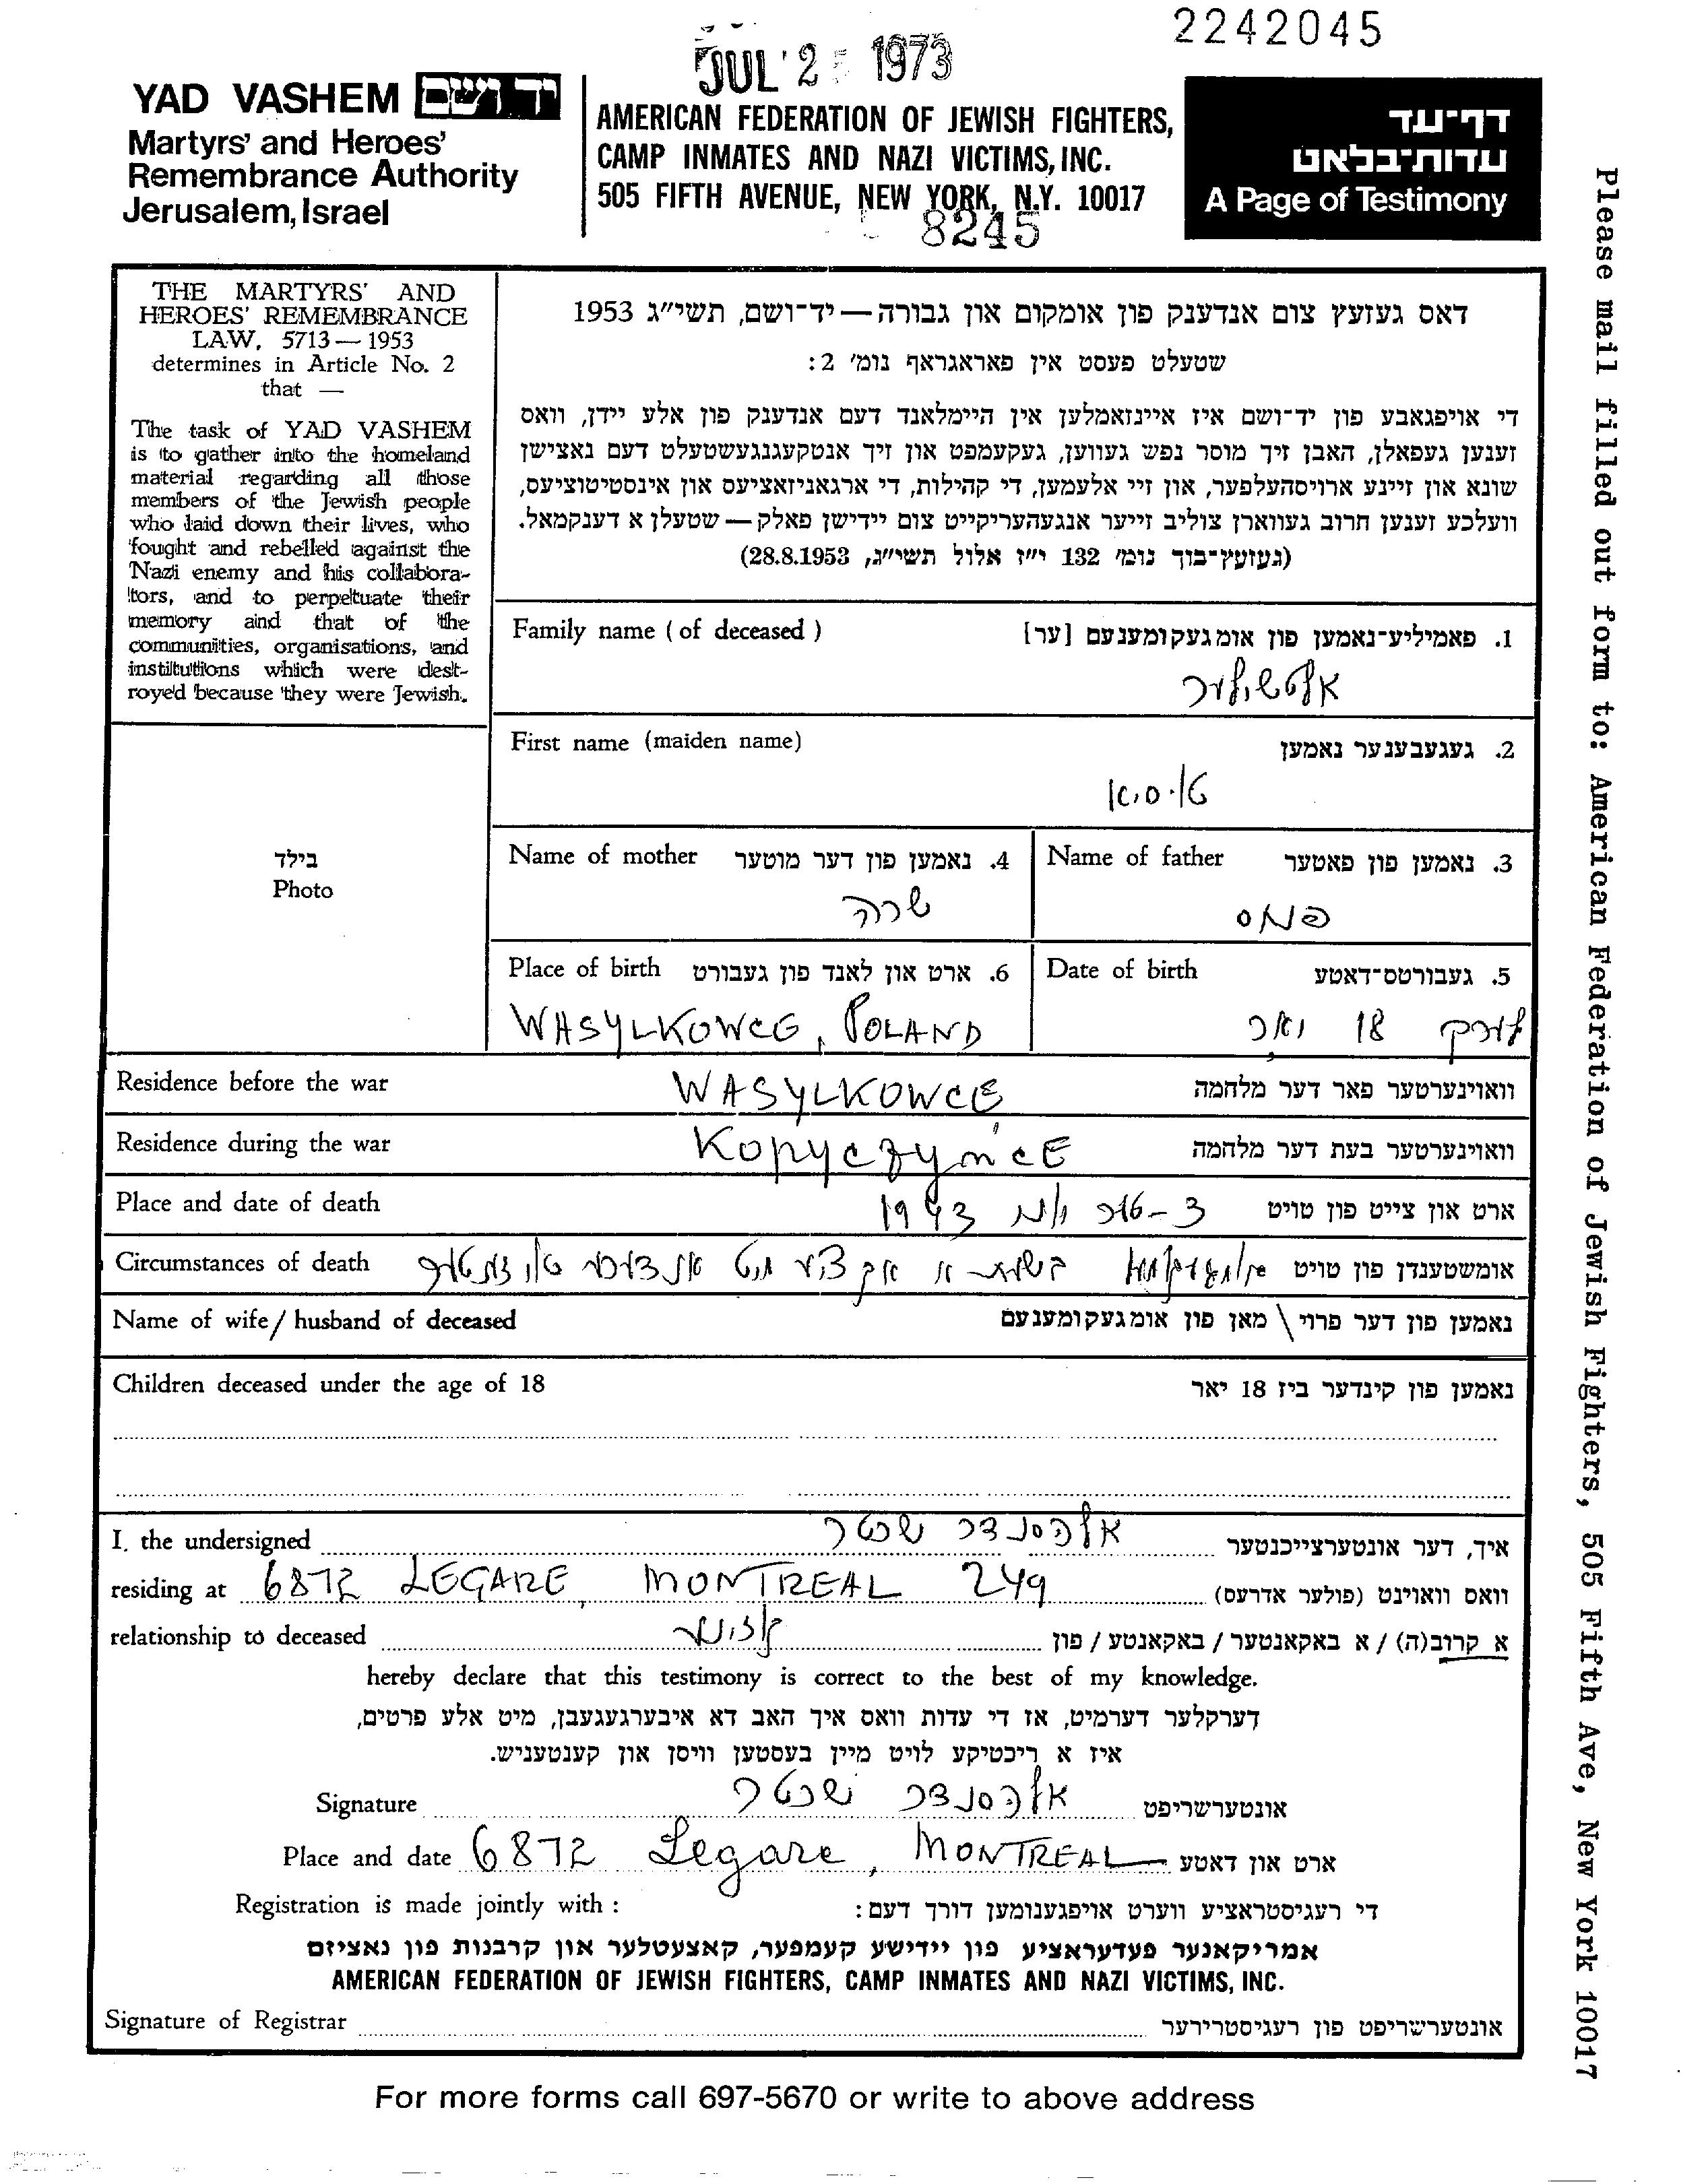 2242045
JUL 25 1973
YAD VASHEM יד ושם
Martyrs' and Heroes'
Remembrance Authority
Jerusalem, Israel
AMERICAN FEDERATION OF JEWISH FIGHTERS,
CAMP INMATES AND NAZI VICTIMS, INC.
505 FIFTH AVENUE, NEW YORK, N.Y. 10017
8245
דף-עד
עדות-בלאט
A Page of Testimony
Please mail filled out form to: American Federation of Jewish Fighters, 505 Fifth Ave, New York 10017
THE MARTYRS' AND
HEROES' REMEMBRANCE
LAW, 5713 — 1953
determines in Article No. 2
that —
The task of YAD VASHEM
is to gather into the homeland
material regarding all those
members of the Jewish people
who laid down their lives, who
fought and rebelled against the
Nazi enemy and his collabora-
tors, and to perpetuate their
memory and that of the
communities, organisations, and
institutions which were dest-
royed because they were Jewish.
דאס געזעץ צום אנדענק פון אומקום און גבורה — יד-ושם, תשי״ג 1953
שטעלט פעסט אין פאראגראף נומ׳ 2:
די אויפגאבע פון יד-ושם איז איינזאמלען אין היימלאנד דעם אנדענק פון אלע יידן, וואס
זענען געפאלן, האבן זיך מוסר נפש געווען, געקעמפט און זיך אנטקעגנגעשטעלט דעם נאצישן
שונא און זיינע ארויסהעלפער, און זיי אלעמען, די קהילות, די ארגאניזאציעס און אינסטיטוציעס,
וועלכע זענען חרוב געווארן צוליב זייער אנגעהעריקייט צום יידישן פאלק — שטעלן א דענקמאל.
(געזעץ-בוך נומ׳ 132 י״ז אלול תשי״ג, 28.8.1953)
Family name ( of deceased ) 1. פאמיליע-נאמען פון אומגעקומענעם [ער]
אלטשולער
First name (maiden name) 2. געגעבענער נאמען
טוסיא
בילד
Photo
Name of mother 4. נאמען פון דער מוטער
שרה
Name of father 3. נאמען פון פאטער
פנחס
Place of birth 6. ארט און לאנד פון געבורט
WASYLKOWCE, POLAND
Date of birth 5. געבורטס-דאטע
18 יאר
Residence before the war WASYLKOWCE וואוינערטער פאר דער מלחמה
Residence during the war KopyczyńcE וואוינערטער בעת דער מלחמה
Place and date of death 1943 ארט און צייט פון טויט
Circumstances of death אומשטענדן פון טויט
Name of wife / husband of deceased נאמען פון דער פרוי \ מאן פון אומגעקומענעם
Children deceased under the age of 18 נאמען פון קינדער ביז 18 יאר
I, the undersigned אלכסנדר שכטר איך, דער אונטערצייכנטער
residing at 6872 LEGARE, MONTREAL 249 וואס וואוינט (פולער אדרעס)
relationship to deceased א קרוב(ה) / א באקאנטער / באקאנטע / פון
hereby declare that this testimony is correct to the best of my knowledge.
דערקלער דערמיט, אז די עדות וואס איך האב דא איבערגעגעבן, מיט אלע פרטים,
איז א ריכטיקע לויט מיין בעסטען וויסן און קענטעניש.
Signature אלכסנדר שכטר אונטערשריפט
Place and date 6872 Legare, MONTREAL ארט און דאטע
Registration is made jointly with : די רעגיסטראציע ווערט אויפגענומען דורך דעם:
אמריקאנער פעדעראציע פון יידישע קעמפער, קאצעטלער און קרבנות פון נאציזם
AMERICAN FEDERATION OF JEWISH FIGHTERS, CAMP INMATES AND NAZI VICTIMS, INC.
Signature of Registrar אונטערשריפט פון רעגיסטרירער
For more forms call 697-5670 or write to above address